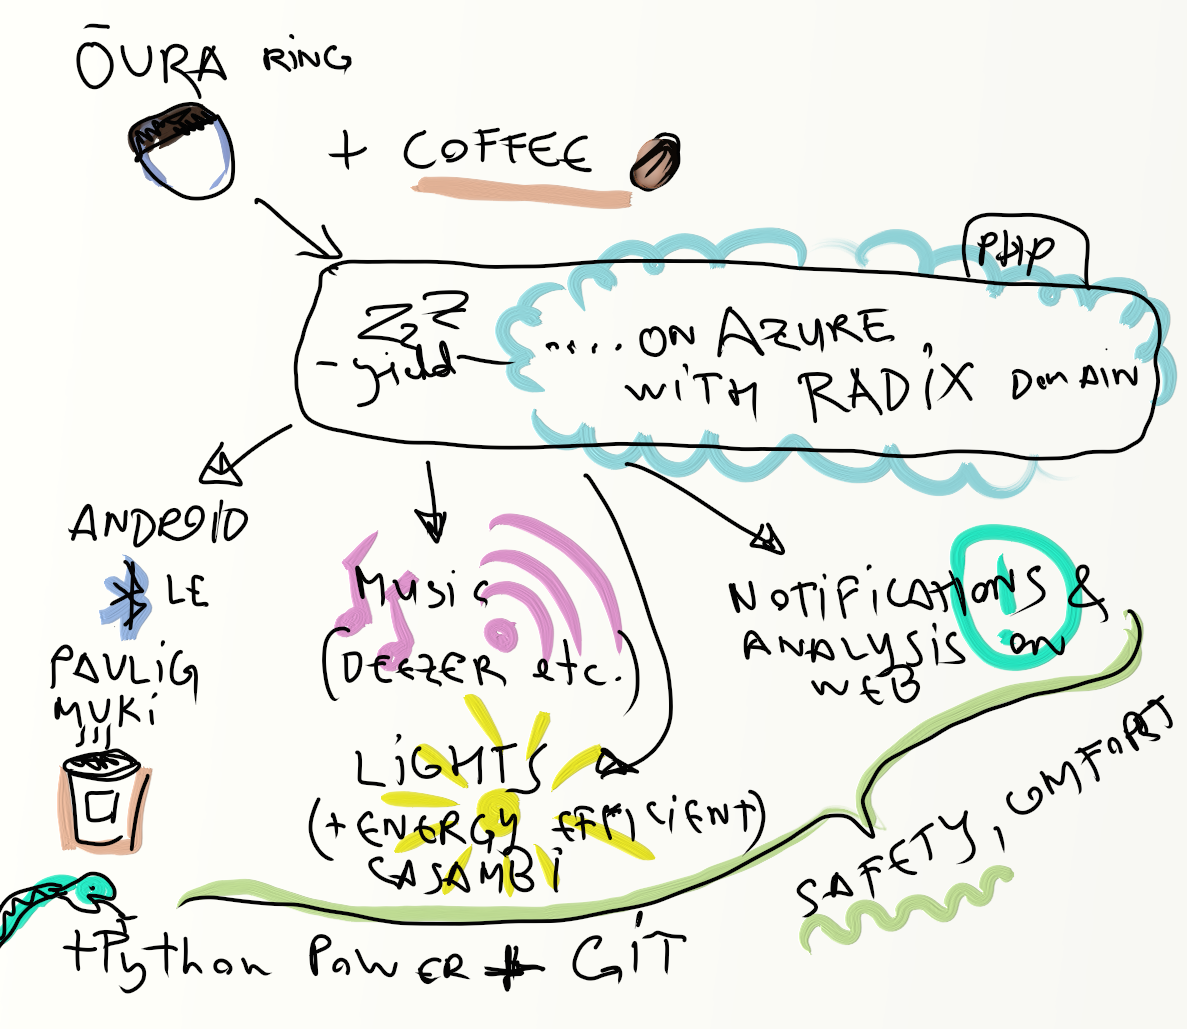 ŌURA RING
+ COFFEE
PHP
ZZZ
-yield-
..... ON AZURE
WITH RADIX DOMAIN
ANDROID
LE
PAULIG
MUKI
MUSIC
(DEEZER etc.)
LIGHTS
(+ ENERGY EFFICIENT)
CASAMBI
NOTIFICATIONS &
ANALYSIS on
WEB
SAFETY, COMFORT
+Python POWER + GIT